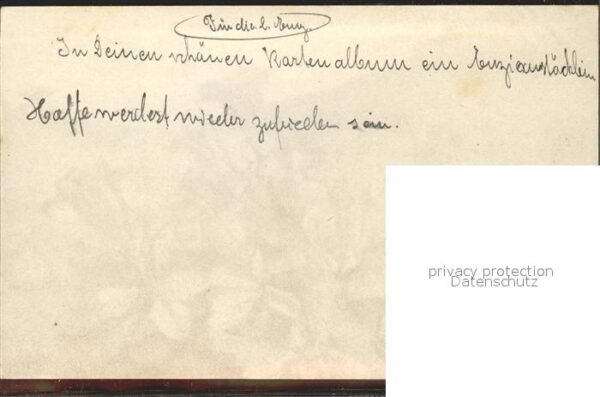 Für die l. Enz.
In Deinen schönen Karten album ein Enzianstöcklein
Hoffe werdest wieder zufrieden sein.
privacy protection
Datenschutz